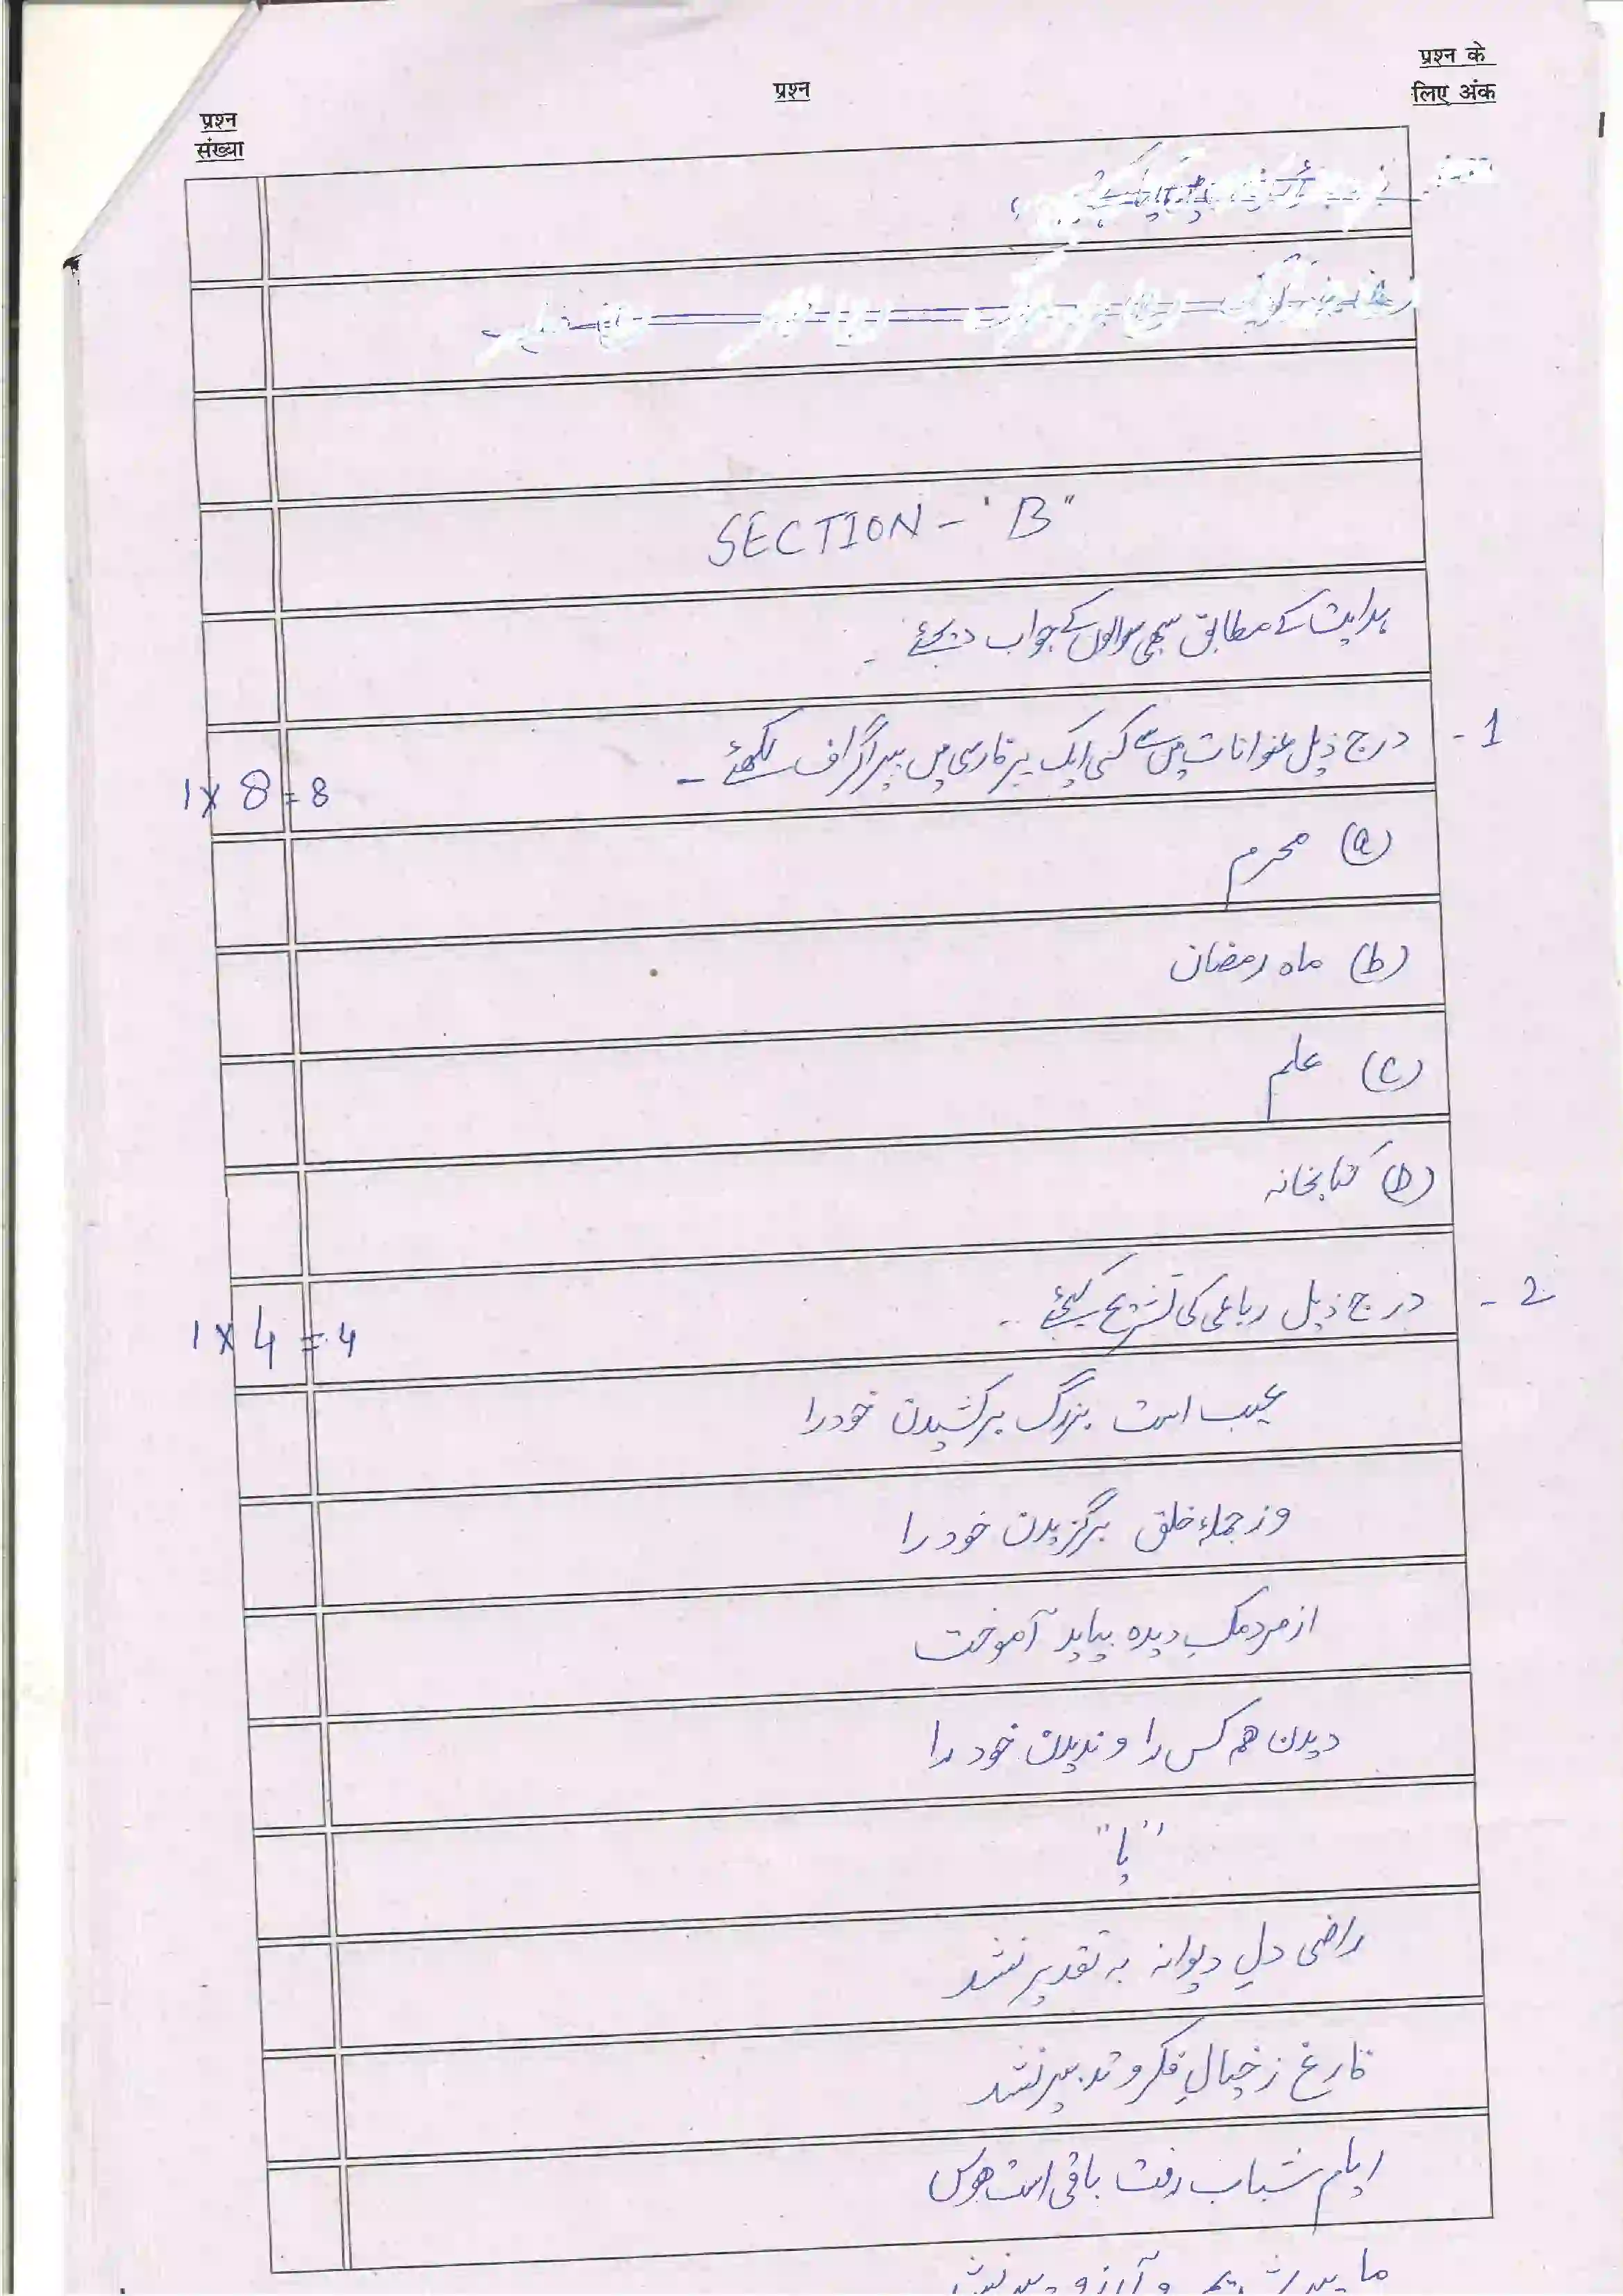 प्रश्न के
लिए अंक
प्रश्न
प्रश्न
संख्या
SECTION - 'B"
ہدایت کے مطابق سبھی سوالوں کے جواب دیجئے -
1 - درج ذیل عنوانات میں سے کسی ایک پر فارسی میں پیراگراف لکھئے -
1 x 8 = 8
(a) محرم
(b) ماہ رمضان
(c) علم
(D) کتابخانہ
2 - درج ذیل رباعی کی تشریح کیجئے -
1 x 4 = 4
عیب است بزرگ برکشیدن خود را
وز جملہء خلق برگزیدن خود را
از مردمکِ دیدہ بباید آموخت
دیدن ہمہ کس را و ندیدن خود را
"یا"
راضی دلِ دیوانہ بہ تقدیر نشد
فارغ ز خیالِ فکر و تدبیر نشد
ایام شباب رفت باقی است ہوس
ما پیر شدیم و آرزو پیر نشد